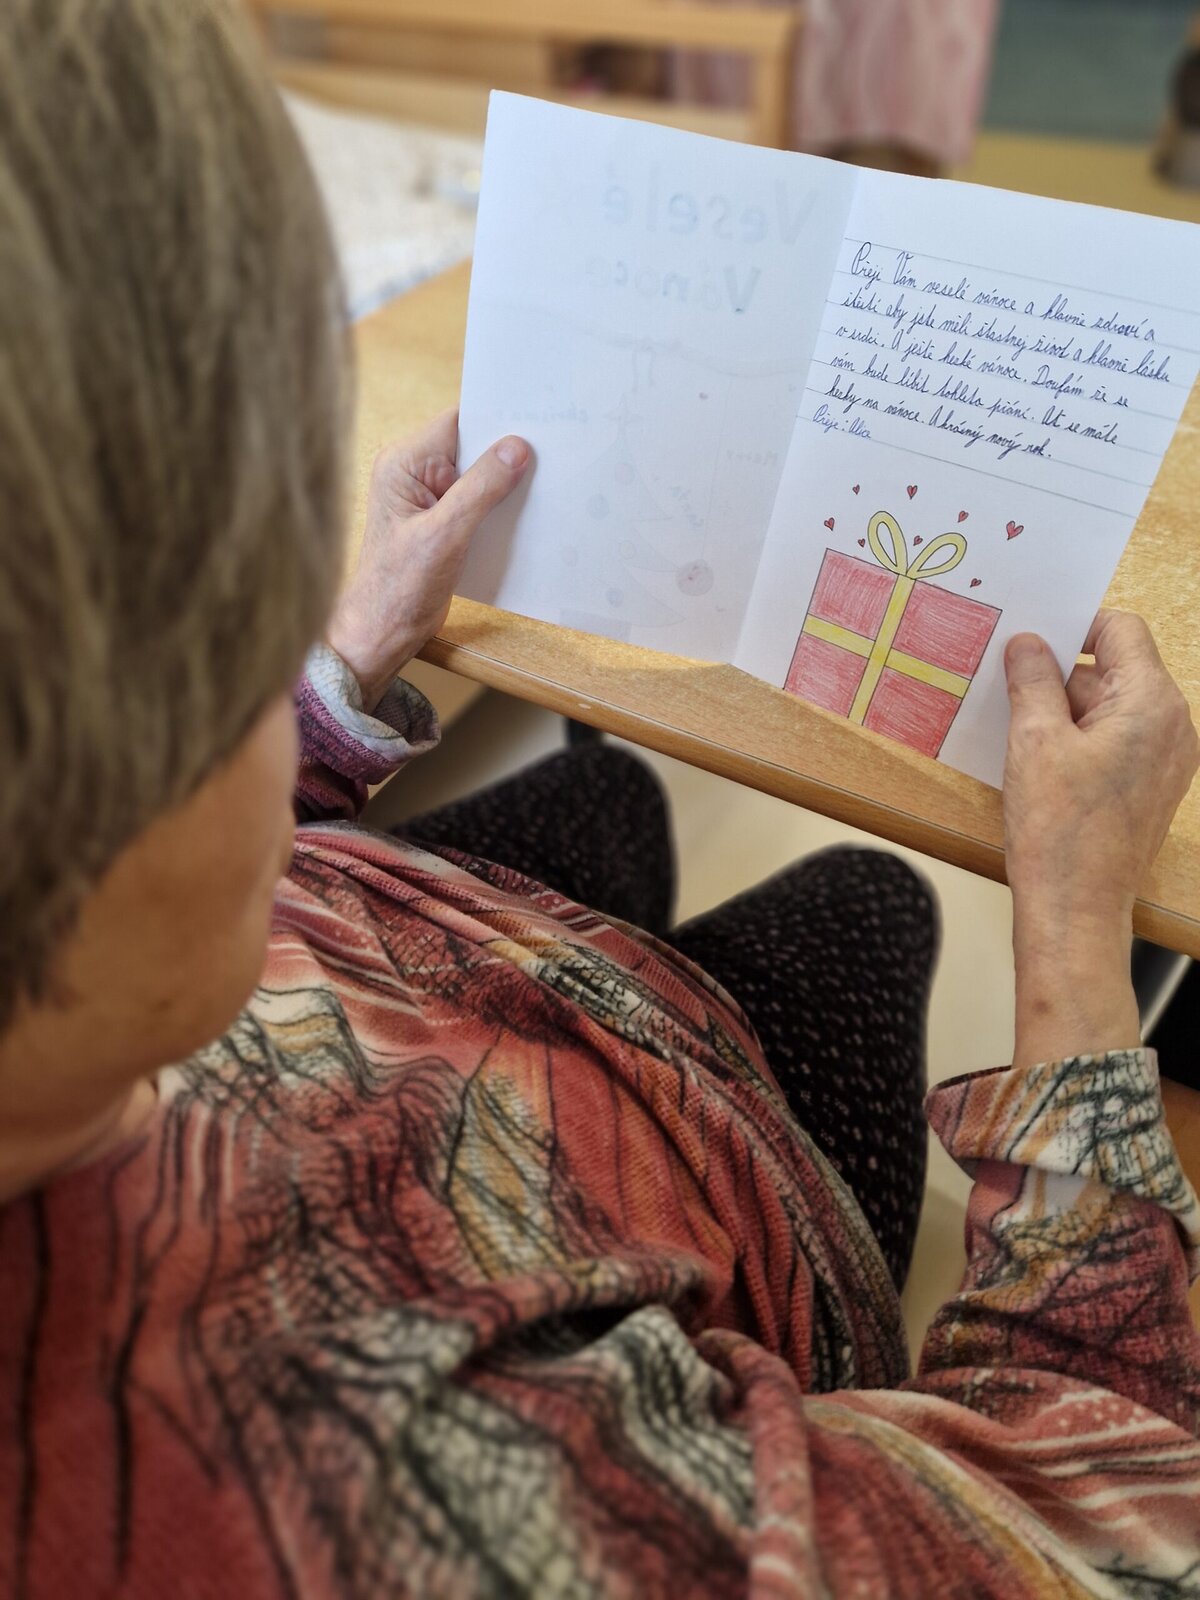 Veselé
Vánoce
Merry
christmas
Přeji Vám veselé vánoce a hlavně zdraví a
štěstí aby jste měli šťastnej život a hlavně lásku
v srdci. A ještě heské vánoce. Doufám že se
vám bude líbit tohleto přání. Ať se máte
hezky na vánoce. A krásný nový rok.
Přeje: Alice